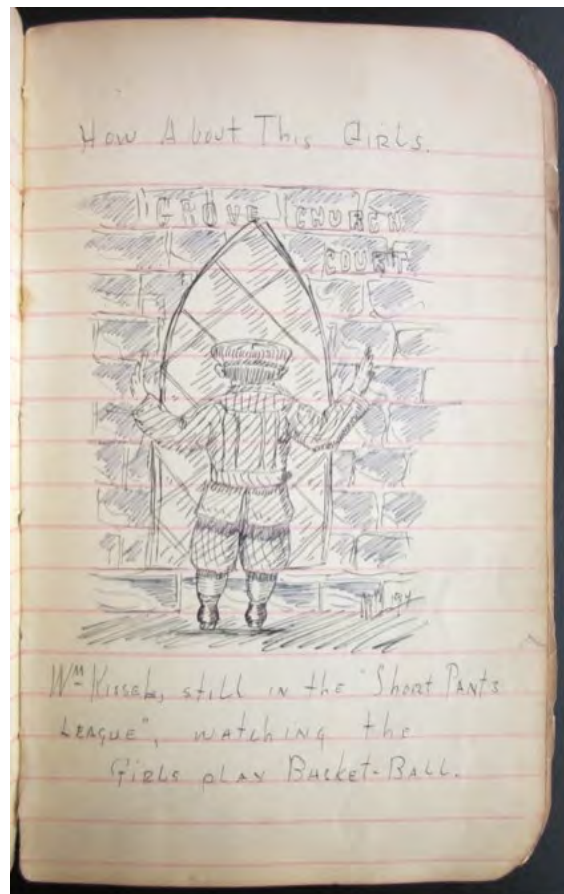 How About This Girls.
GROVE CHURCH
COURT
Wm Kissel, still in the "Short Pants
League", watching the
Girls play Basket-Ball.